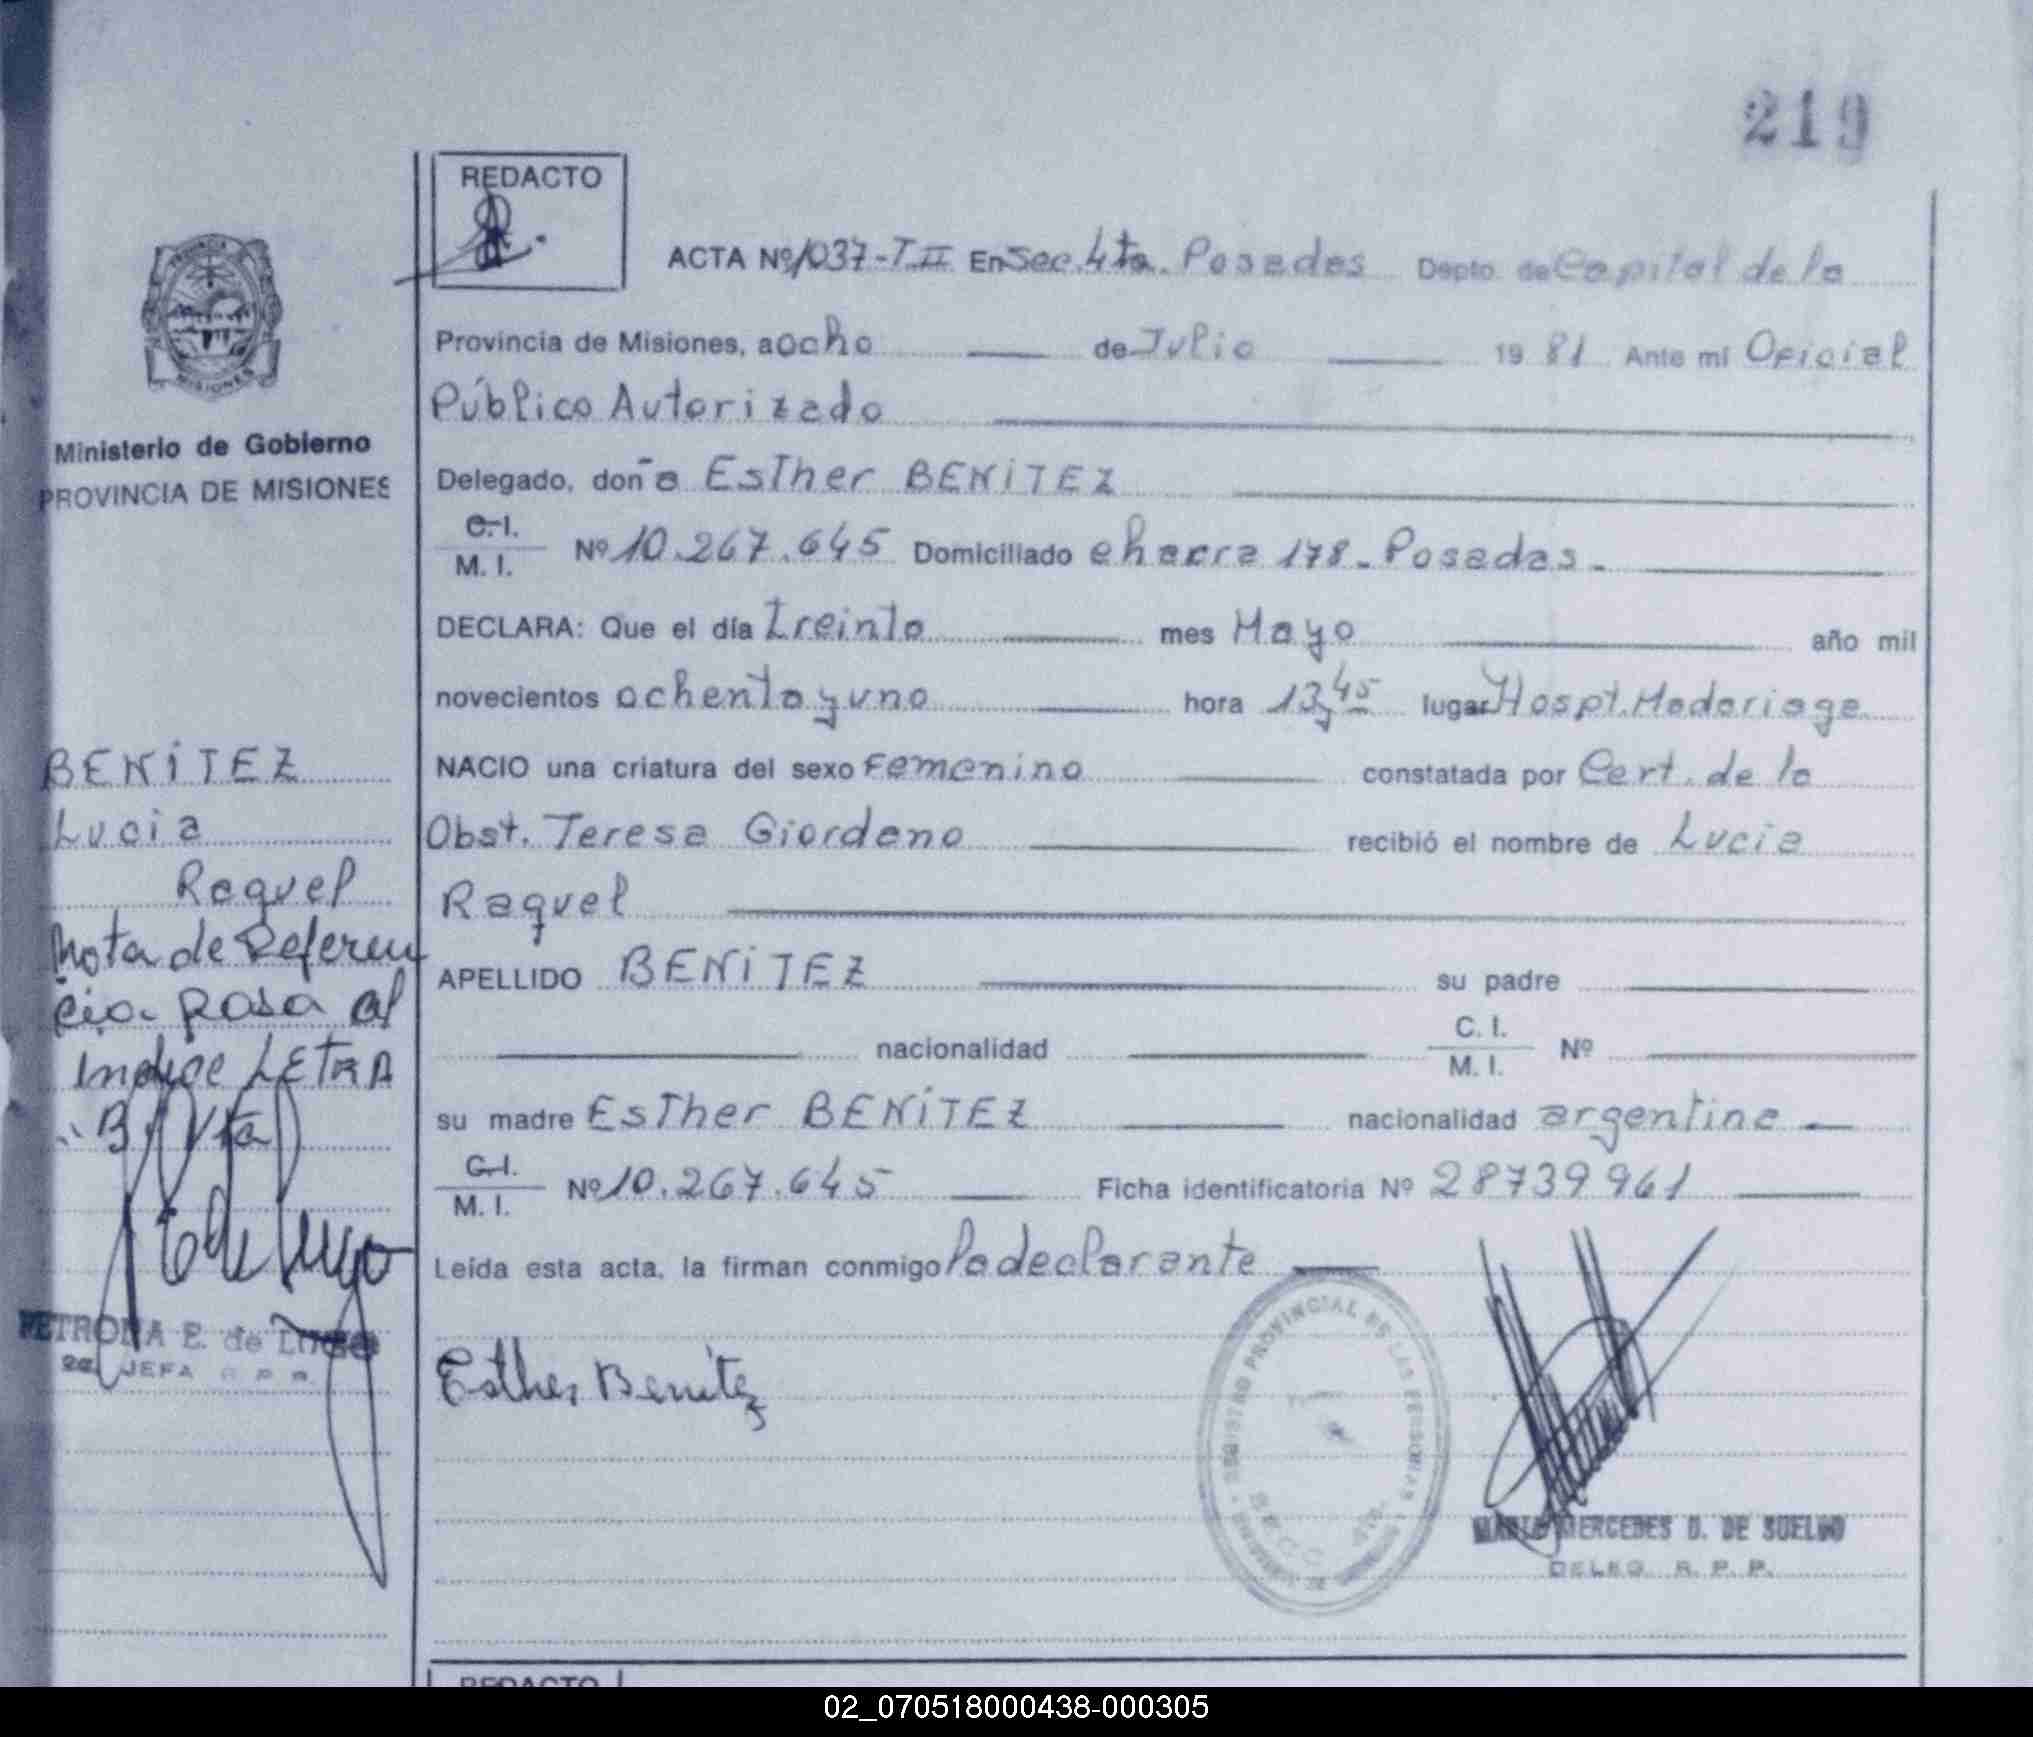 219
REDACTO
ACTA Nº 1037-T.II En Sec. 4ta. Posadas Depto. de Capital de la
Provincia de Misiones, a ocho de Julio 19 81 Ante mí Oficial
Público Autorizado
Delegado, doña Esther BENíTEZ
C.I.
M. I. Nº 10.267.645 Domiciliado chacra 178 - Posadas.
DECLARA: Que el día treinta mes Mayo año mil
novecientos ochenta y uno hora 13,45 lugar Hospt. Madariaga
NACIO una criatura del sexo Femenino constatada por Cert. de la
Obst. Teresa Giordano recibió el nombre de Lucia
Raquel
APELLIDO BENíTEZ su padre
nacionalidad C. I.
M. I. Nº
su madre Esther BENíTEZ nacionalidad argentina
C.I.
M. I. Nº 10.267.645 Ficha identificatoria Nº 28739961
Leída esta acta, la firman conmigo la declarante
Esther Benitez
REGISTRO PROVINCIAL DE LAS PERSONAS
SECC. 4ta.
MERCEDES D. DE SUELDO
DELEG. R. P. P.
PROVINCIA
MISIONES
Ministerio de Gobierno
PROVINCIA DE MISIONES
BENíTEZ
Lucia
Raquel
Nota de Referen
cia. Pasa al
Indice LETRA
"B" Vta
PETRONA E. de
JEFA R. P. P.
REDACTO
02_070518000438-000305